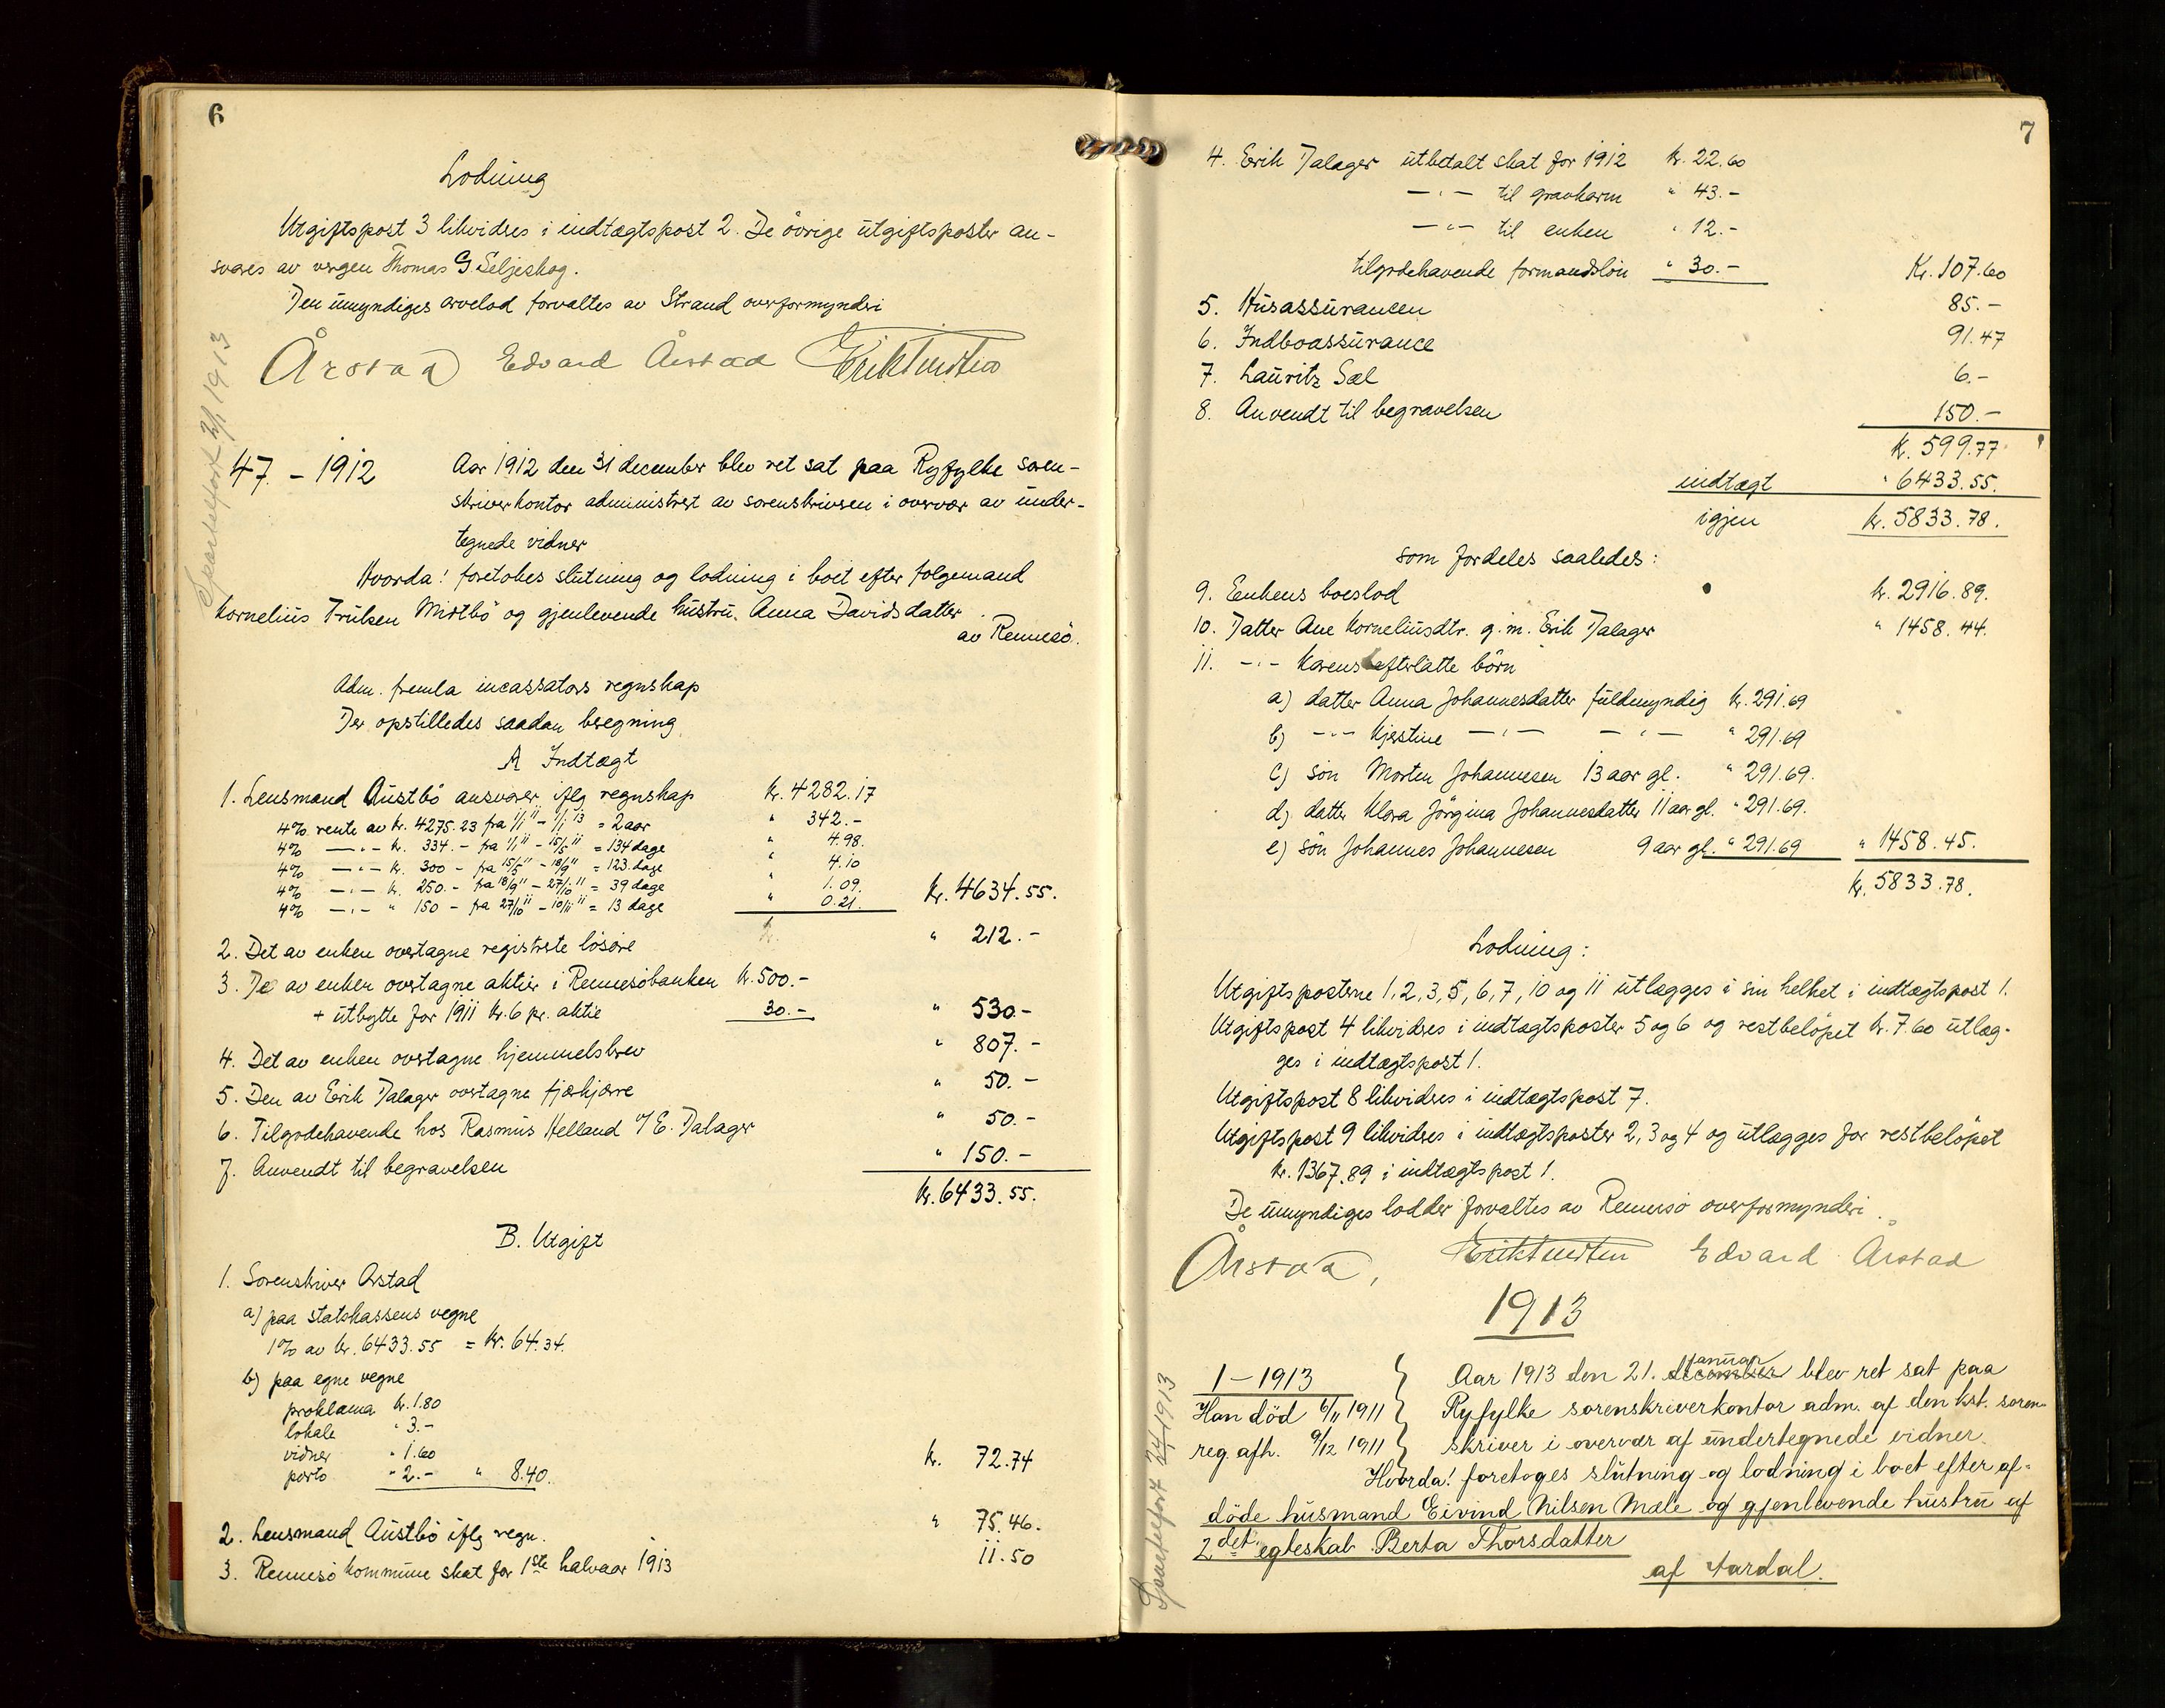 6
Lodning
Utgiftspost 3 likvidres i indtægtspost 2. De övrige utgiftsposter an-
svares av vergen Thomas G Seljeskog.
Den umyndiges arvelod forvaltes av Strand overformynderi
Årstad Edvard Årstad
1913
47 - 1912 Aar 1912 den 31 december blev ret sat paa Ryfylke soren-
skriverkontor administrert av sorenskriveren i overvær av under-
tegnede vidner
Hvorda! foretokes slutning og lodning i boet efter folgemand
Kornelius Trulsen Mostbö og gjenlevende hustru Anna Davidsdatter
av Rennesö.
Adm. fremla incassators regnskap
Der opstilledes saadan beregning
A Indtægt
1. Lensmand Austbö ansvarer iflg regnskap kr. 4282.17
4% rente av kr. 4275.23 fra 1/1 11 - 1/1 13 = 2 aar " 342.-
4% —"— kr. 334.- fra 1/1 11 - 15/5 11 = 134 dage " 4.98.
4% —"— kr. 300 - fra 15/5 11 - 18/9 11 = 123 dage " 4.10
4% —"— kr. 250.- fra 18/9 11 - 27/10 11 = 39 dage " 1.09.
4% —"— " 150 - fra 27/10 11 - 10/11 11 = 13 dage " 0.21. kr. 4634.55.
2. Det av enken overtagne registrerte lösöre kr. " 212.-
3. De av enken overtagne aktier i Rennesöbanken kr. 500.-
+ utbytte for 1911 kr. 6 pr. aktie 30.- " 530.-
4. Det av enken overtagne hjemmelsbrev " 807.-
5. Den av Erik Dalager overtagne fjærkjærre " 50.-
6. Tilgodehavende hos Rasmus Helland v/ E. Dalager " 50.-
7. Anvendt til begravelsen " 150.-
kr. 6433.55.
B. Utgift
1. Sorenskriver Årstad
a) paa statskassens vegne
1% av kr. 6433.55 = kr. 64.34.
b) paa egne vegne
proklama kr. 1.80
lokale " 3.-
vidner " 1.60
porto " 2.- " 8.40. kr. 72.74
2. Lensmand Austbö iflg regn. " 75.46.
3. Rennesö kommune skat for 1ste halvaar 1913 11.50
7
4. Erik Dalager utbetalt skat for 1912 kr. 22.60
—"— til gravkarm " 43.-
—"— til enken " 12.-
tilgodehavende formandslön " 30.- Kr. 107.60
5. Husassurancen 85.-
6. Indboassurance 91.47
7. Lauritz Sæl 6.-
8. Anvendt til begravelsen 150.-
kr. 599.77
indtægt " 6433.55.
igjen kr. 5833.78.
som fordeles saaledes:
9. Eenkens boeslod kr. 2916.89.
10. Datter Ane Korneliusdtr. g.m. Erik Dalager " 1458.44.
11. —"— Karens efterlatte börn
a) datter Anna Johannesdatter fuldmyndig kr. 291.69
b) —"— Kjerstine —"— —"— " 291.69
c) sön Morten Johannesen 13 aar gl. " 291.69.
d) datter Klara Jörgina Johannesdatter 11 aar gl. " 291.69.
e) sön Johannes Johannesen 9 aar gl. " 291.69 " 1458.45.
kr. 5833.78.
Lodning:
Utgiftsposterne 1, 2, 3, 5, 6, 7, 10 og 11 utlægges i sin helhet i indtægtspost 1.
Utgiftspost 4 likvidres i indtægtsposter 5 og 6 og restbelöpet kr. 7.60 utlæg-
ges i indtægtspost 1.
Utgiftspost 8 likvidres i indtægtspost 7.
Utgiftspost 9 likvidres i indtægtsposter 2, 3 og 4 og utlægges for restbelöpet
kr. 1367.89 i indtægtspost 1.
De umyndiges lodder forvaltes av Rennesö overformynderi.
Årstad, Edvard Årstad
1913
1 - 1913 Aar 1913 den 21. december januar blev ret sat paa
Han död 6/11 1911 Ryfylke sorenskriverkontor adm. af den kst. soren-
reg. afh. 9/12 1911 skriver i overvær af undertegnede vidner.
Hvorda! foretoges slutning og lodning i boet efter af-
döde husmand Eivind Nilsen Mæle og gjenlevende hustru af
2det egteskab Berta Thorsdatter
af Aardal.
1913